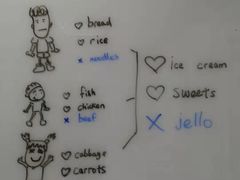 bread
rice
x noodles
fish
chicken
x beef
cabbage
carrots
ice cream
sweets
X jello